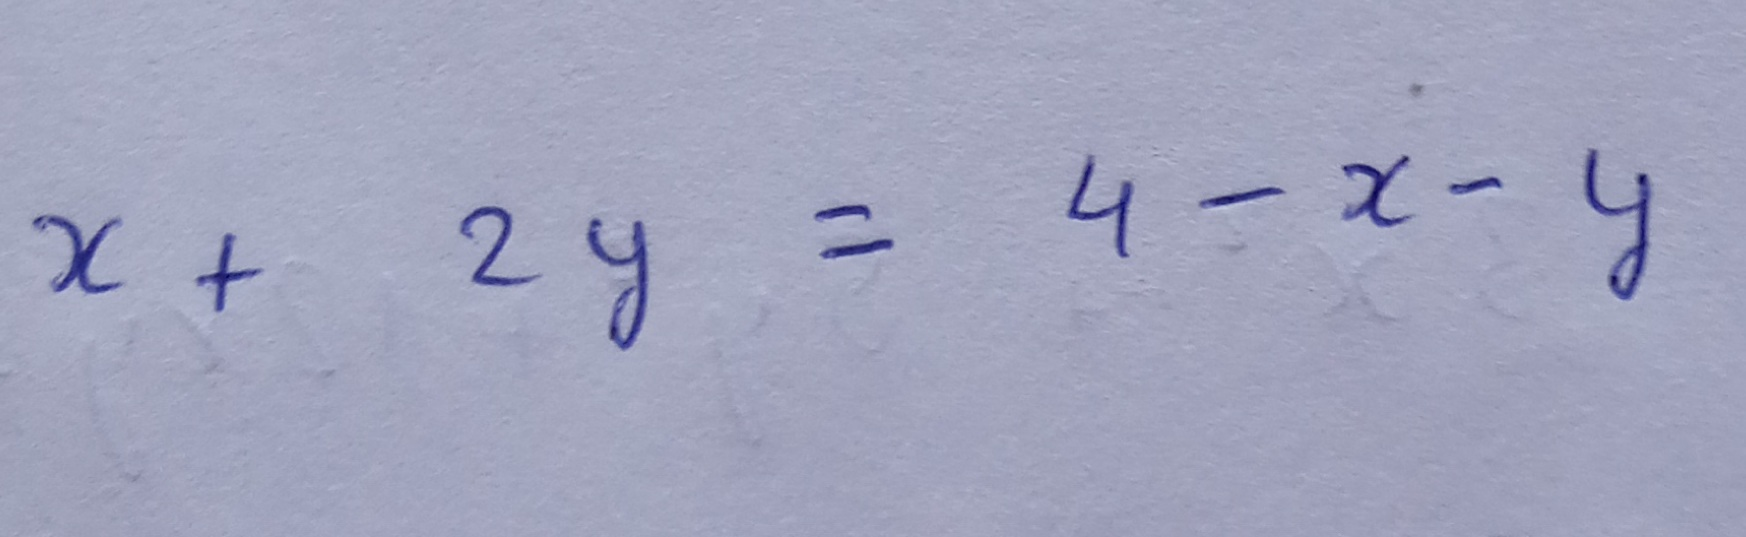 x + 2y = 4 - x - y